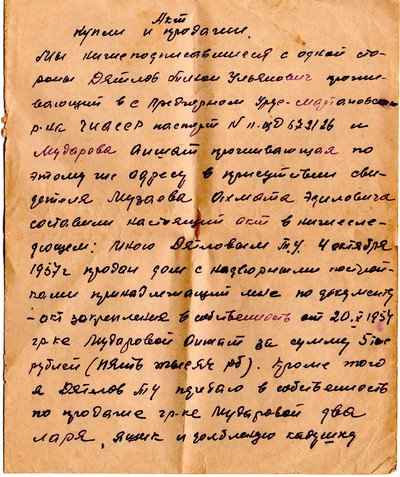 Акт
купли и продажи.
Мы нижеподписавшиеся с одной сто-
роны Дятлов Тихон Ульянович прожи-
вающий в с Предгорном Урус-мартановского
р-на ЧИАССР паспорт N 579126 и
Мударова Аишат проживающая по
этому же адресу в присутствии сви-
детеля Музаева Ахмата Эдиловича
составили настоящий акт в нижесле-
дующем: Мною Дятловым ТУ. 4 октября
1957г продан дом с надворными построй-
ками принадлежащий мне по документу
- акт закрепления в собственность от 20.V 1957
гр-ке Мударовой Аишат за сумму 5 тыс
рублей (пять тысяч рб). Кроме того
я Дятлов ТУ передаю в собственность
по продаже гр-ке Мударовой два
ларя, ящик и долбленую кадушку